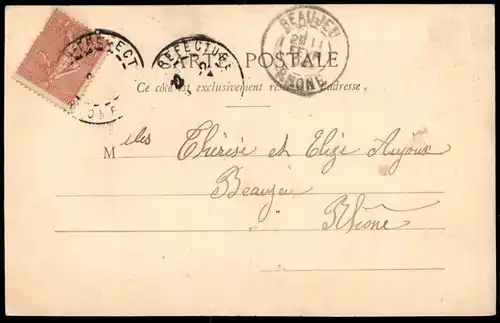 PREFECT
RHONE
PREFECTURE
BEAUJEU
RHONE
CARTE POSTALE
Ce côté est exclusivement réservé à l'adresse.
Melles Thérèse et Eliza Aujoux
Beaujeu
Rhône